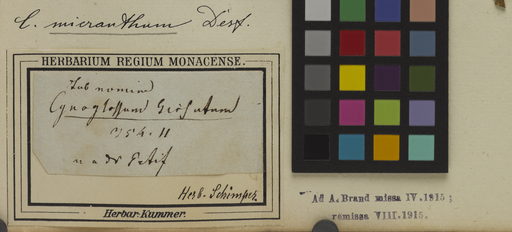 C. micranthum Desf.
HERBARIUM REGIUM MONACENSE.
Sub nomine
Cynoglossum
Herb. Schimper.
Herbar. Kummer.
Ad A. Brand missa IV. 1915 ;
remissa VIII. 1915.